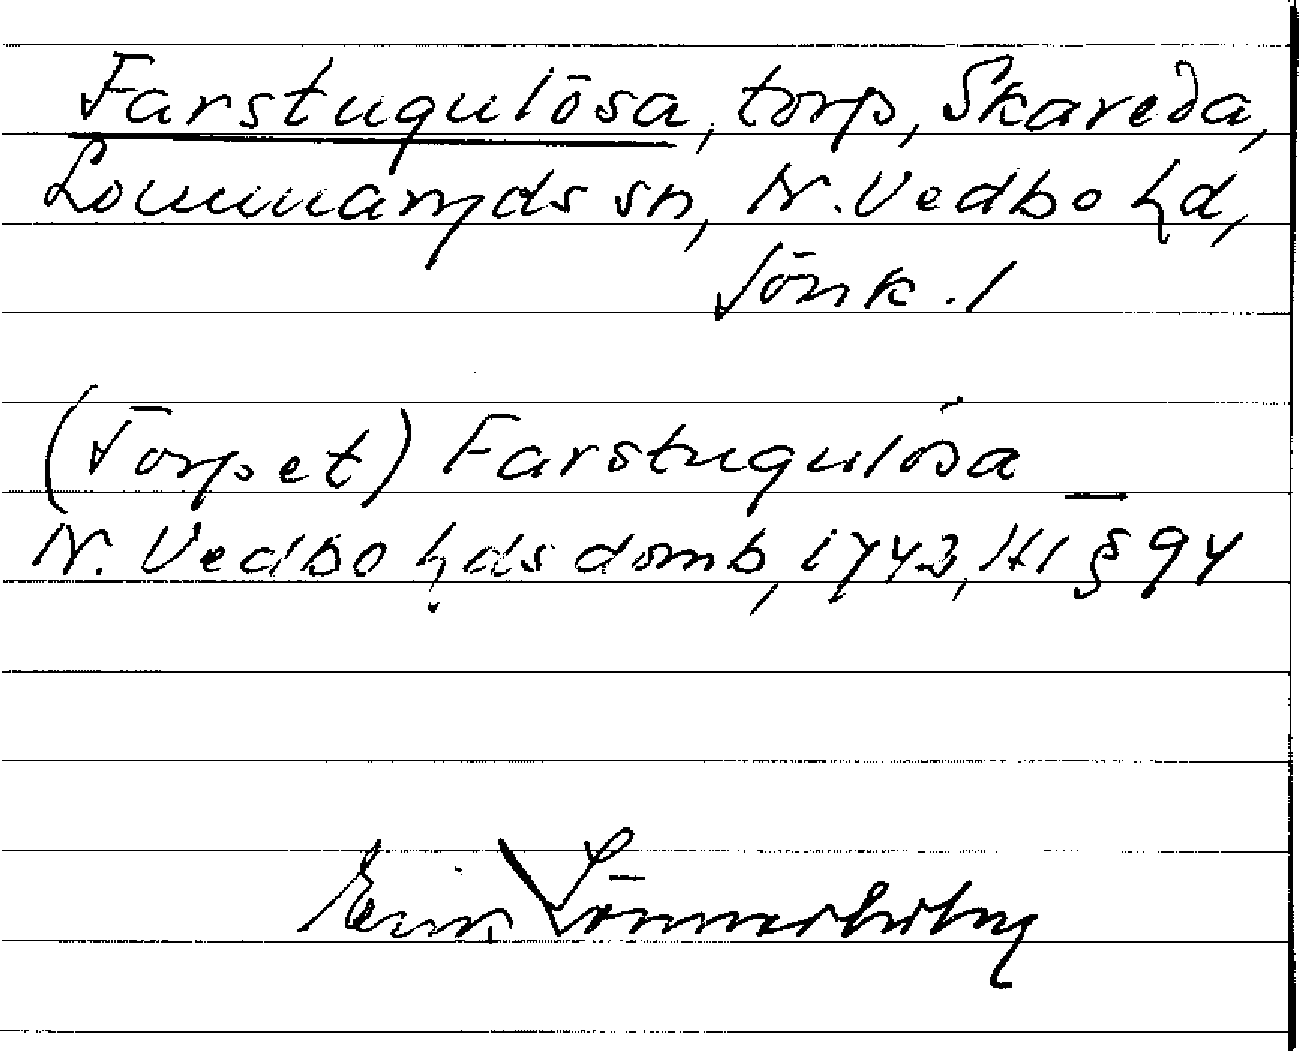 Farstugulösa, torp, Skareda,
Lommaryds sn, N. Vedbo hd,
Jönk. l
(Torpet) Farstugulösa —
N. Vedbo hds domb, 1743, Ht § 94